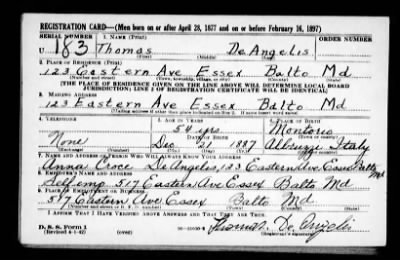 REGISTRATION CARD—(Men born on or after April 28, 1877 and on or before February 16, 1897)
SERIAL NUMBER 1. NAME (Print) ORDER NUMBER
U 183 Thomas De Angelis
(First) (Middle) (Last)
2. PLACE OF RESIDENCE (Print)
123 Eastern Ave Essex Balto Md
(Number and street) (Town, township, village, or city) (County) (State)
[THE PLACE OF RESIDENCE GIVEN ON THE LINE ABOVE WILL DETERMINE LOCAL BOARD
JURISDICTION; LINE 2 OF REGISTRATION CERTIFICATE WILL BE IDENTICAL]
3. MAILING ADDRESS
123 Eastern Ave Essex Balto Md
[Mailing address if other than place indicated on line 2. If same insert word same]
4. TELEPHONE 5. AGE IN YEARS 6. PLACE OF BIRTH
54 yrs Montorio
DATE OF BIRTH
None Dec 21 1887 Italy
7. NAME AND ADDRESS OF PERSON WHO WILL ALWAYS KNOW YOUR ADDRESS
Anna De Angelis, 123 Eastern Ave Essex Balto Md
8. EMPLOYER'S NAME AND ADDRESS
Self emp 517 Eastern Ave Essex Balto Md
9. PLACE OF EMPLOYMENT OR BUSINESS
517 Eastern Ave Essex Balto Md
(Number and street or R. F. D. number) (Town) (County) (State)
I AFFIRM THAT I HAVE VERIFIED ABOVE ANSWERS AND THAT THEY ARE TRUE.
D. S. S. Form 1
(Revised 4-1-42) (over)